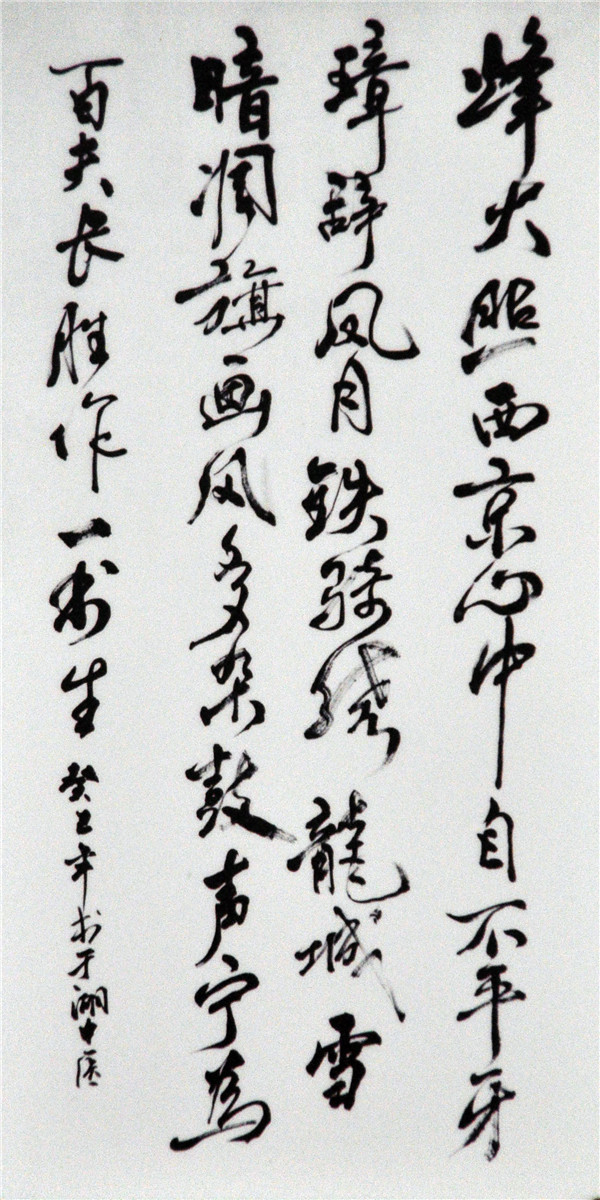 烽火照西京心中自不平牙
璋辞凤月鉄骑绕龍城雪
暗凋旗画风多杂鼓声宁為
百夫长胜作一书生
癸巳年书于湖中医